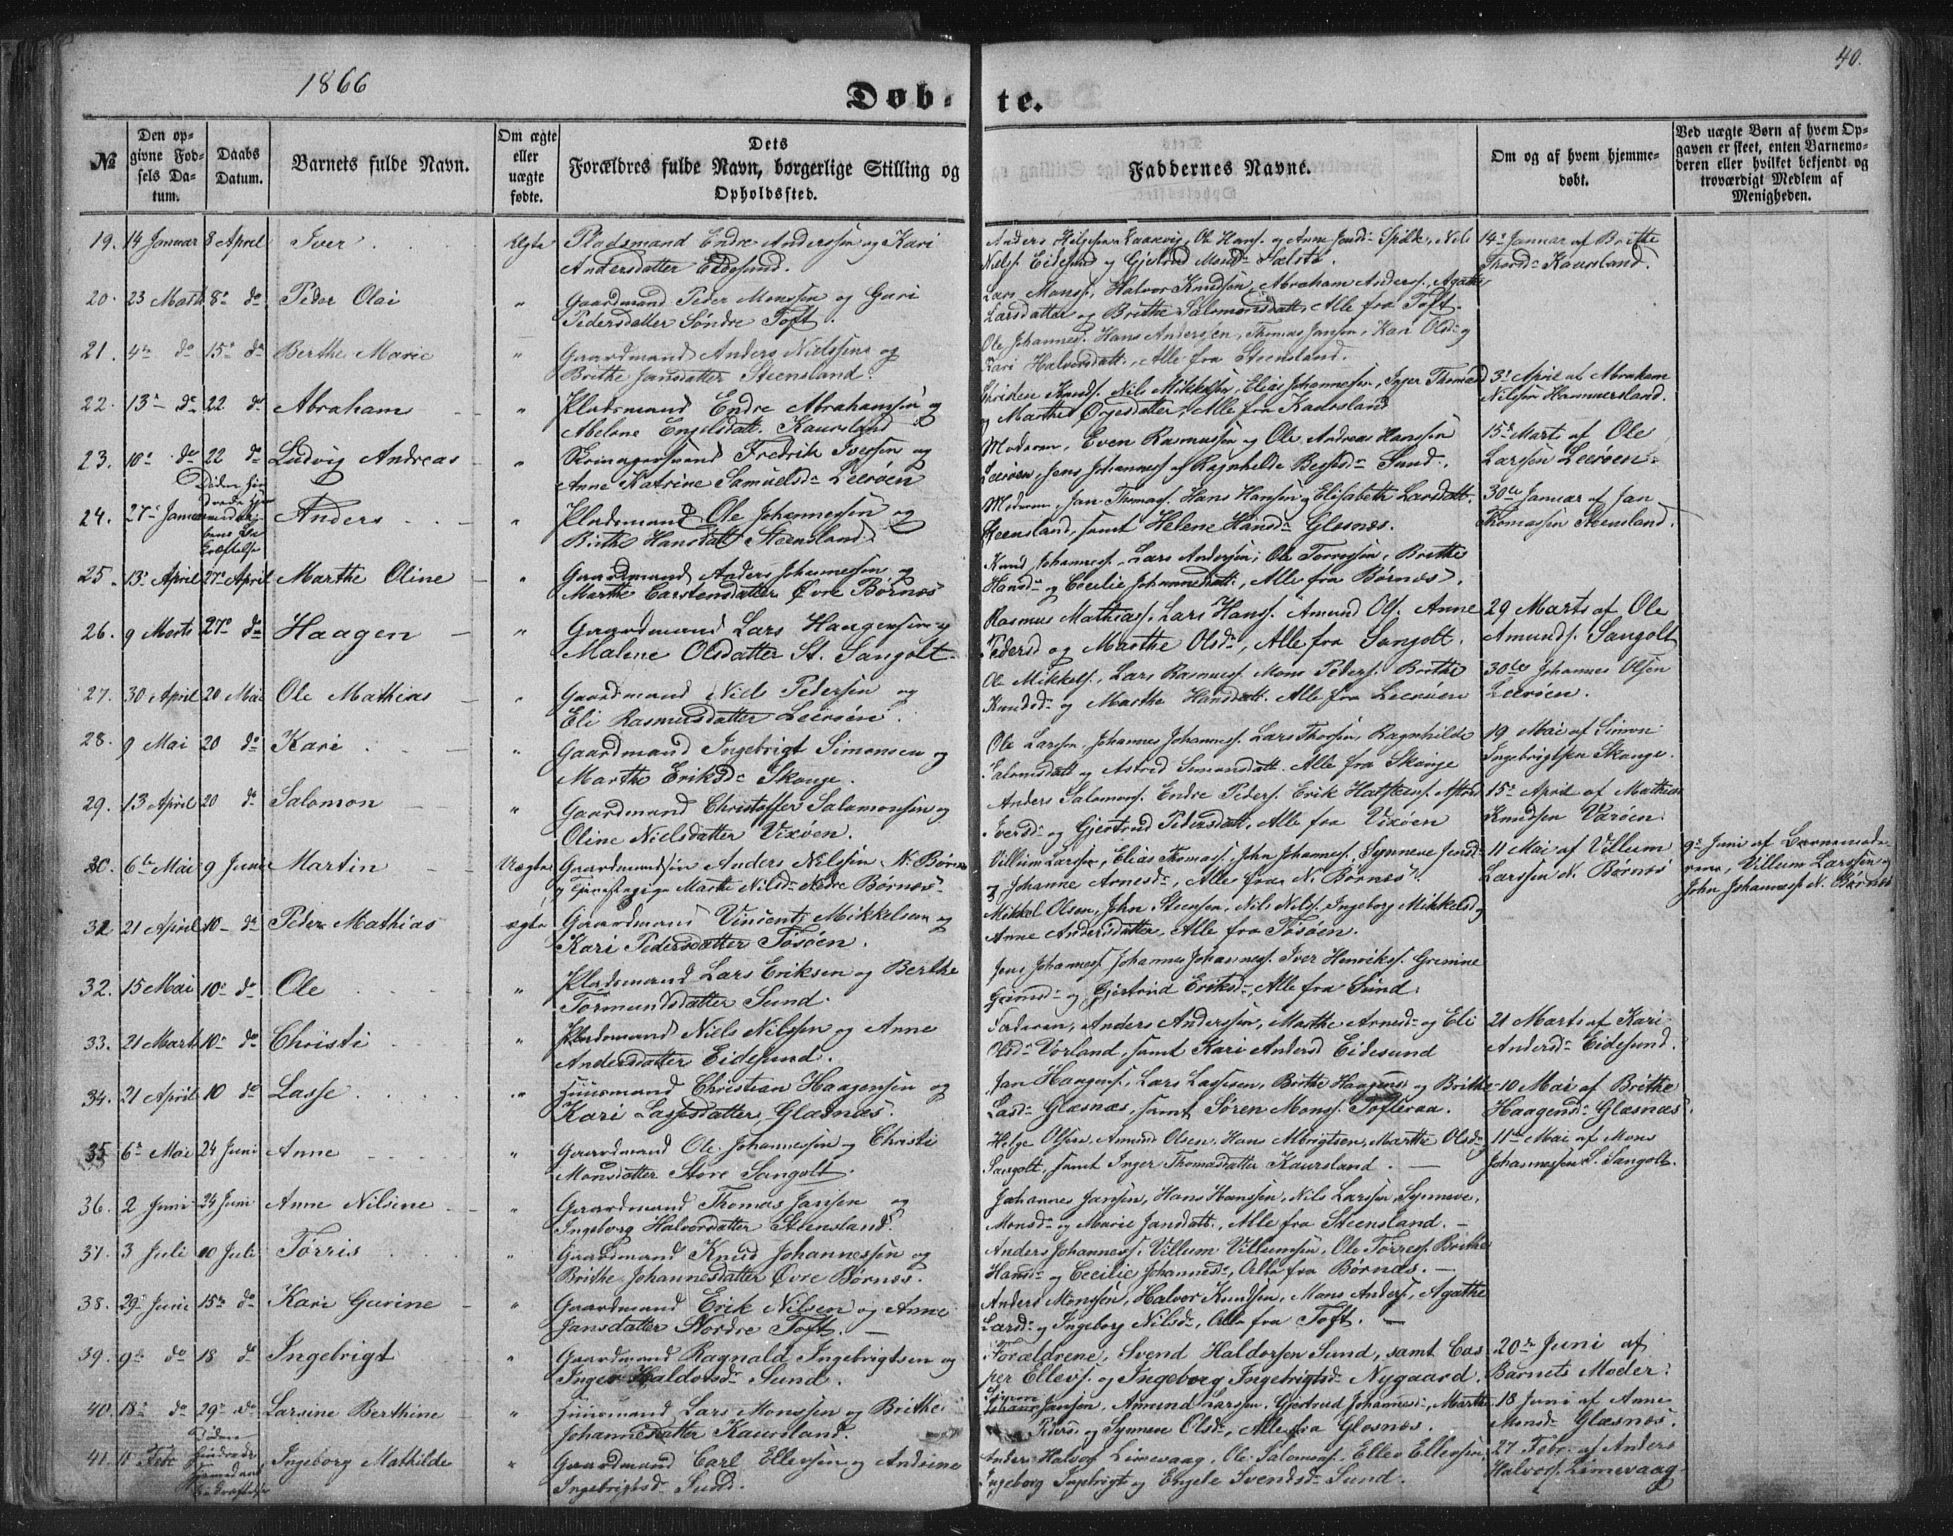 1866
40.
Døbte.
№
Den opgivne Fødsels Datum.
Daabs Datum.
Barnets fulde Navn.
Om ægte eller uægte fødte.
Dets Forældres fulde Navn, borgerlige Stilling og Opholdssted.
Faddernes Navne.
Om og af hvem hjemmedøbt.
Ved uægte Børn af hvem Opgaven er skeet, enten Barnemoderen eller hvilket bekjendt og troværdigt Medlem af Menigheden.
19. 14 Januar 8 April Iver Ægte Pladsmand Endre Anderssen og Kari
Andersdatter Eidesund.
Anders Helgesen Ole Hans. og Anne Nils
Niels. Eidesund og Gjertrud Monsd.
14 Januar af Brithe
Kaursland.
20. 23 Marts 8 do Peder Olai " Gaardmand Peder Monssen og Guri
Pedersdatter Søndre Toft.
Lars Monss. Halvor Knudsen, Abraham Anderss. Agathe
Larsdatter og Brithe Salomonsdatt. Alle fra Toft.
21. 4 do 15 do Berthe Marie " Gaardmand Anders Nielssen og
Brithe Jansdatter Steensland.
Ole Johannes. Hans Anderssen, Thomas Jansen, Kari Olsd. og
Kari Halvorsdatt. Alle fra Steensland.
22. 13 do 22 do Abraham " Pladsmand Endre Abrahamssen og
Abelone Engelsdatt. Kaursland
Christen Knuds. Nils Mikkelsen, Elias Johannessen, Inger Thomasd
og Marthe Alle fra Kaursland
3 April af Abraham
Nilssen Hammersland.
23. 10 do 22 do Ludvig Andreas " Fredrik Iverssen og
Anne Katrine Samuelsd. Leerøen
Moderen, Even Rasmussen og Ole Andreas Hanssen
Leerøen, Jens Johannes. Ragnhilde Sund.
15 Mart af Ole
Larssen Leerøen.
24. 27 Januar Anders " Pladsmand Ole Johannessen og
Brithe Hansdatt Steensland
Moderen, Jan Thomas. Hans Hanssen og Elisabeth Larsdatt.
Steensland, samt Helene Hansd. Glesnæs.
30te Januar af Jan
Thomassen Steensland.
25. 13 April 27 April Marthe Oline " Gaardmand Anders Johannessen og
Marthe Carstensdatter Øvre Børnæs
Knud Johannes. Lars Anderssen, Ole Torressen, Brithe
Hansd. og Cecilie Johannesdatt., Alle fra Børnæs.
26. 9 Marts 27 do Haagen " Gaardmand Lars Haagenssen og
Malene Olsdatter St. Sangolt
Rasmus Mathias. Lars Hans. Amund Ols. Anne
Pedersd og Marthe Olsd., Alle fra Sangolt.
29 Marts af Ole
Amunds. Sangolt
27. 30 April 20 Mai Ole Mathias " Gaardmand Niels Pedersen og
Eli Rasmusdatter Leerøen.
Ole Mikkels, Lars Rasmus. Mons Peders. Brithe
Knudsd. og Marthe Hansdatt. Alle fra Leerøen
30te Johannes Olsen
Leerøen.
28. 9 Mai 20 do Kari " Gaardmand Ingebrigt Simonsen og
Marthe Eriksd. Skonge.
Ole Larssen Johannes Johannes. Lars Ragnhilde
og Astrid Simonsdatt. Alle fra Skonge
19 Mai af Simon
Ingebrigtsen Skonge.
29. 13 April 20 do Salomon " Gaardmand Christoffer Salomonssen og
Oline Nielsdatter Vixøen.
Anders Salomons. Endre Peders. Erik
Iversd. og Gjertrud Pedersdatt, Alle fra Vixøen
15 April af Mathias
Knudsen
30. 6te Mai 9 Juni Martin Uægte Gaardmandssøn Anders Nilssen N. Børnæs
og Marthe Nilsd. Nedre Børnæs
Villum Larssen, Elias Thomas, John Johannes., Synneve Jensd.
Johanne Arnesd., Alle fra N. Børnæs.
11 Mai af Villum
Larssen N. Børnæs
9 Juni af Barnemode-
rene, Villum Larssen og
John Johannes N. Børnæs
31. 21 April 10 do Peder Mathias ægte Gaardmand Vincents Mikkelsen og
Kari Pedersdatter Tøsøen.
Mikkel Olsen, John Steensen, Nils Nils. Ingeborg Mikkelsd og
Anne Andersdatter, Alle fra Tøsøen.
32. 15 Mai 10 do Ole " Pladsmand Lars Eriksen og Berthe
Tormundsdatter Sund.
Jens Johannes. Johannes Johannes. Iver Henriks.
og Gjertrud Eriksd., Alle fra Sund.
33. 21 Mart 10 do Christi " Pladsmand Niels Nilssen og Anne
Andersdatter Eidesund.
Faderen, Anders Anderssen, Marthe Arnesd. og Eli
Olsd. Vorland, samt Kari Andersd Eidesund
21 Marts af Kari
Andersd. Eidesund.
34. 21 April 10 do Lasse " Huusmand Christian Haagenssen og
Kari Lassesdatter Glæsnæs.
Jan Haagens. Lars Lassesen, Brithe Haagens og Brithe
Lasd. Glæsnæs, samt Søren Mons. Tofteraa.
10 Mai af Brithe
Haagensd. Glæsnæs.
35 6 Mai 24 Juni Anne " Gaardmand Ole Johannessen og Christi
Monsdatter Store Sangolt.
Helge Olsen, Amund Olsen, Hans Albrigtsen, Marthe Olsd.
Sangolt, samt Inger Thomasdatter Kaursland.
11te Mai af Mons
Johannessen S. Sangolt.
36. 2 Juni 24 Juni Anne Nilsine " Gaardmand Thomas Jansen og
Ingeborg Halvorsdatter Steensland.
Johannes Jansen, Hans Hanssen, Nils Larssen, Synneve
Monsd. og Marie Jansdatt., Alle fra Steensland.
37. 3 Juli 10 Juli Tørris " Gaardmand Knud Johannessen og
Brithe Johannesdatter Øvre Børnæs.
Anders Johannes. Villum Villumsen, Ole Tørres. Brithe
Hansd. og Cecilie Johannesd., Alle fra Børnæs.
38. 29 Juni 15 do Kari Gurine " Gaardmand Erik Nilsen og Anne
Jansdatter Nordre Toft.
Anders Monssen, Halvor Knudsen, Mons Anders, Agathe
Larsd. og Ingeborg Nilsd., Alle fra Toft.
39. 9 do 18 do Ingebrigt " Gaardmand Ragnald Ingebrigtsen og
Inger Haldorsd. Sund.
Forældrene, Svend Haldorsen Sund, samt Cas-
per Ellevs. og Ingeborg Ingebrigtsd. Nygaard.
20 Juni af
Barnets Moder.
40. 18 do 29 do Larsine Berthine " Huusmand Lars Monssen og Brithe
Johannesdatter Kaursland.
Jansen, Amund Larssen, Gjertrud Johannes., Marthe
Peders. og Synneve Olsd., Alle fra Glæsnæs.
18 Juni af Anne
Monsd. Glæsnæs.
41. 11 Feb. Ingeborg Mathilde " Gaardmand Carl Ellevsen og Andrine
Ingebrigtsd. Sund.
Anders Halvors Limevaag, Ole Salomons, Ellev Ellevsen
Ingeborg Ingebrigts og Engele Svendsd. Sund.
27 Febr. af Anders
Halvors. Limevaag